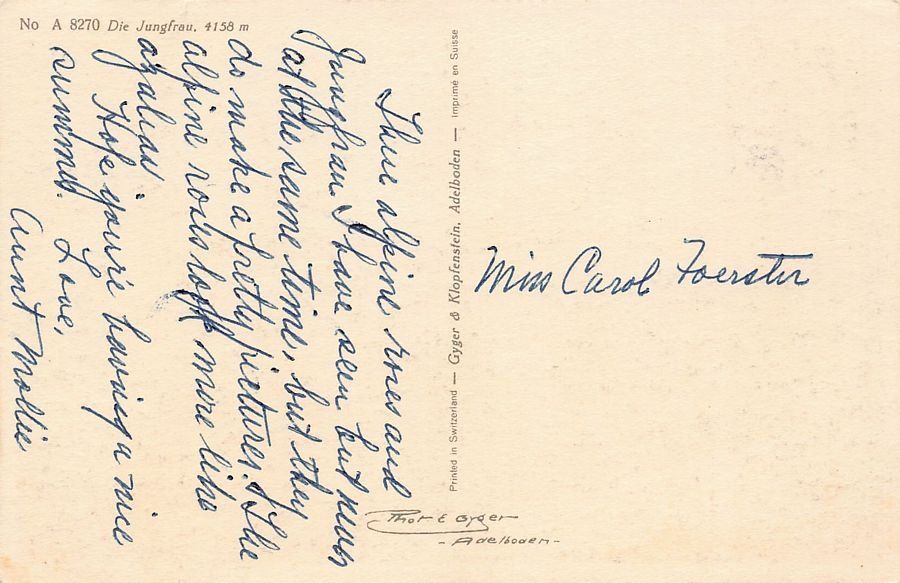 No A 8270 Die Jungfrau, 4158 m
These alpine roses and
Jungfrau I have seen but never
at the same time, but they
do make a pretty picture. The
alpine roses look more like
azalias
Hope you're having a nice
summer. Love,
Aunt Mollie
Printed in Switzerland — Gyger & Klopfenstein, Adelboden — Imprimé en Suisse
Miss Carol Foerster
Phot E Gyger
- Adelboden -